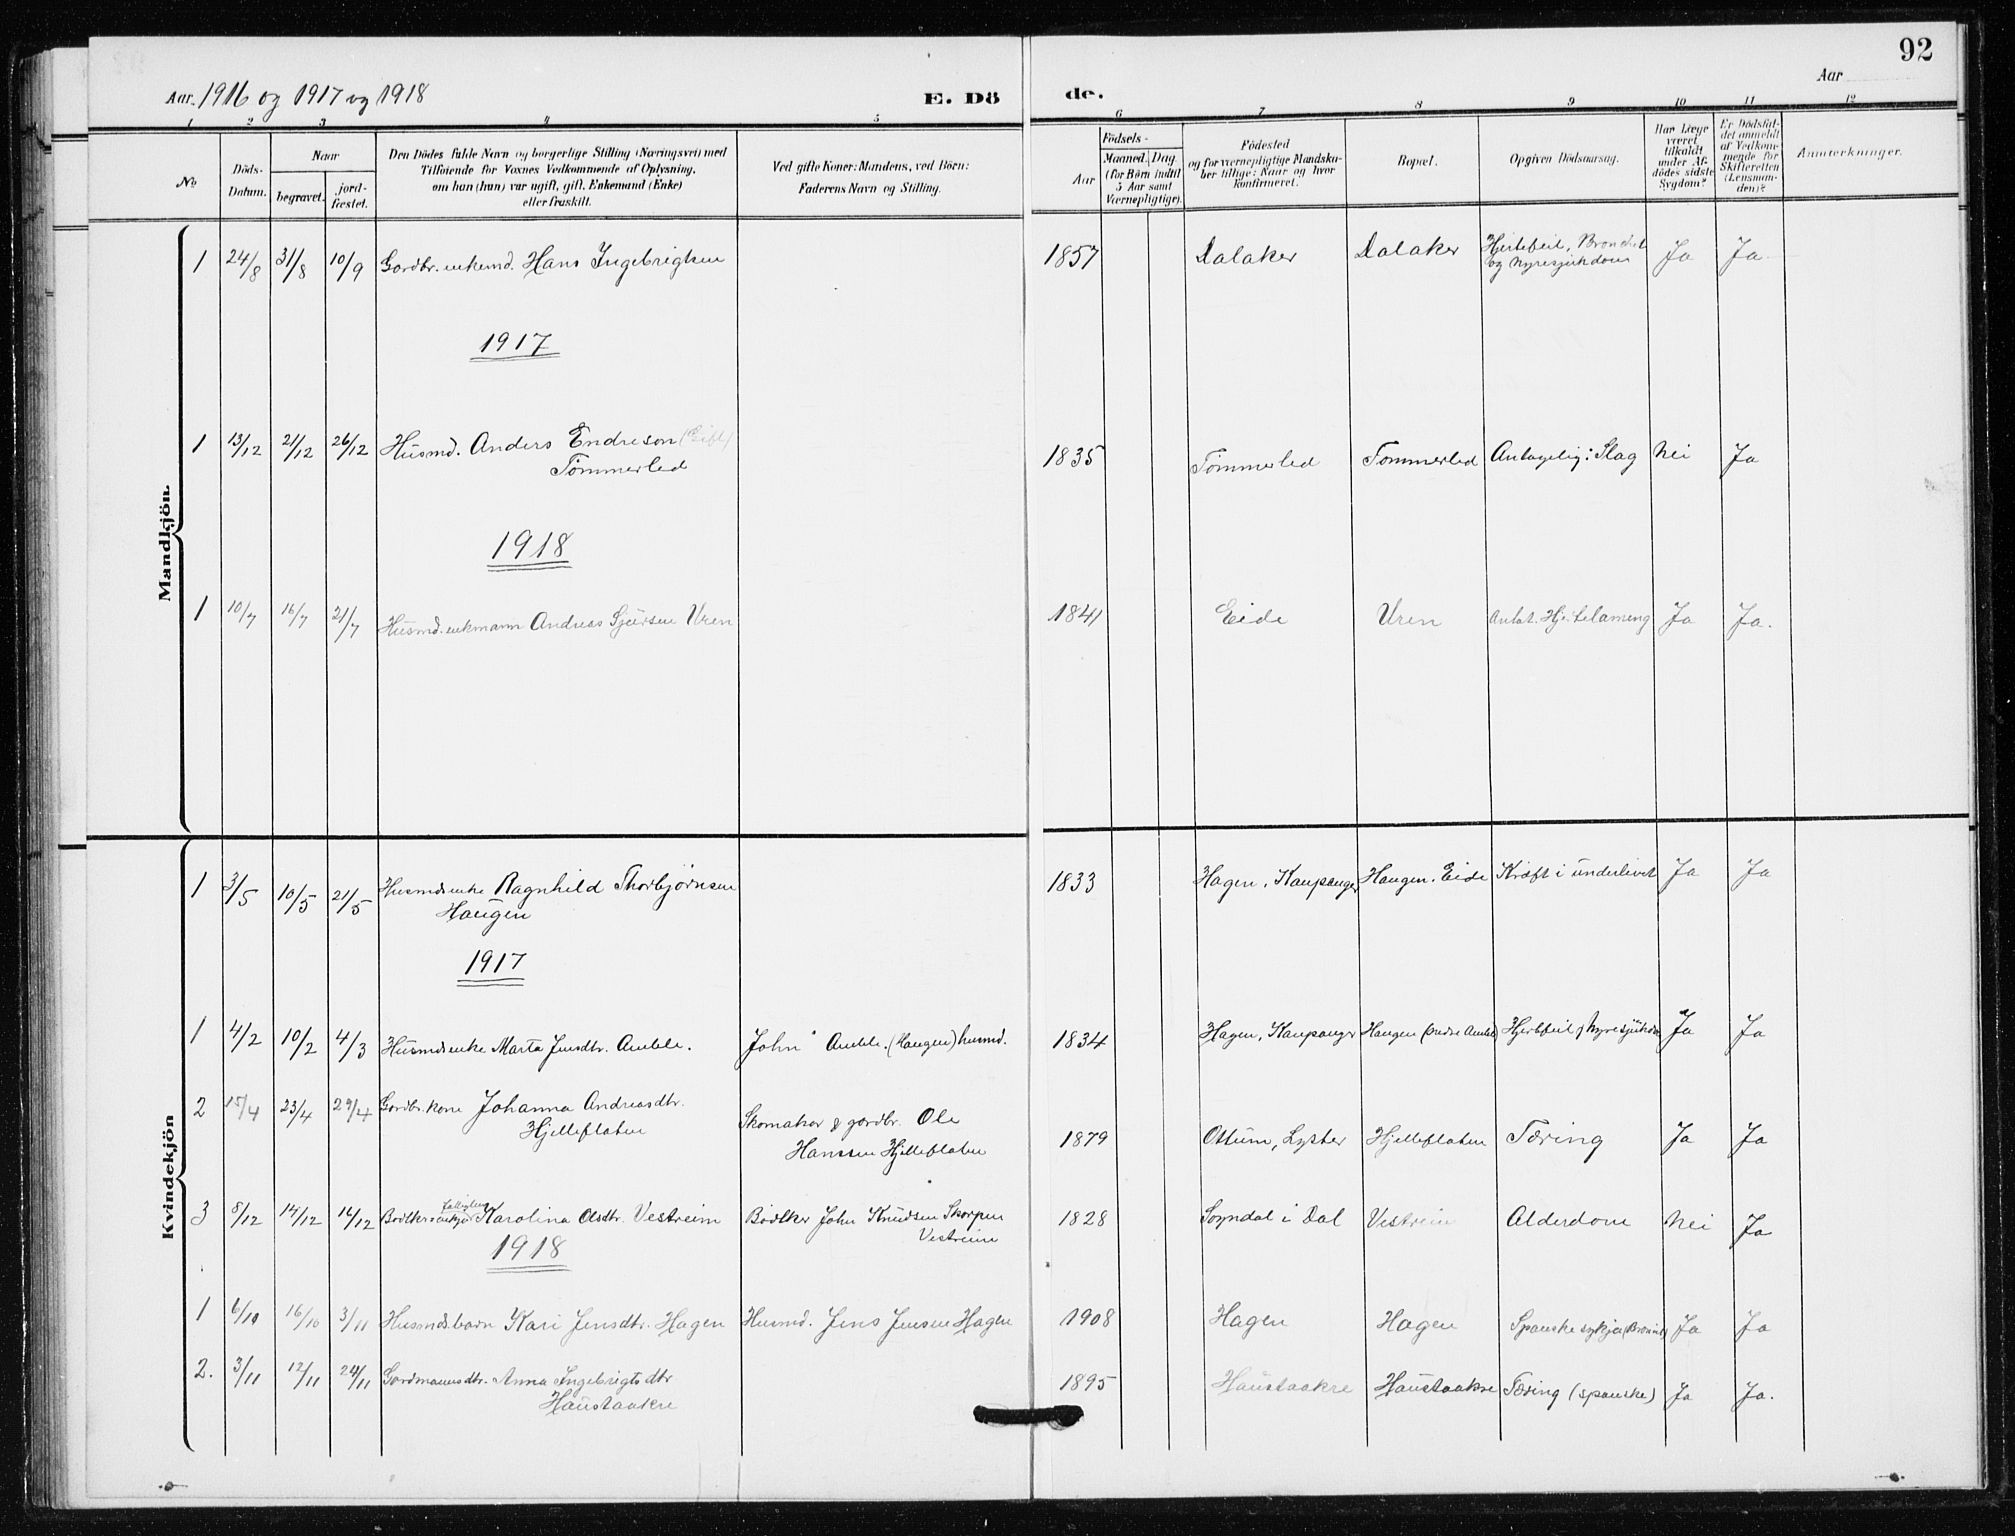 92
Aar. 1916 og 1917 og 1918
E. Dö
de.
Aar
1 2 3 4 5 6 7 8 9 10 11 12
No
Döds-
Datum.
Naar
begravet.
jord-
fæstet.
Den Dödes fulde Navn og borgerlige Stilling (Næringsvei) med
Tilföiende for Voxnes Vedkommende af Oplysning,
om han (hun) var ugift, gift, Enkemand (Enke)
eller fraskilt.
Ved gifte Koner: Mandens, ved Börn:
Faderens Navn og Stilling.
Födsels-
Aar
Maaned. Dag.
(for Börn indtil
5 Aar samt
Værnepligtige).
Födested
og for værnepligtige Mandska-
ber tillige: Naar og hvor
konfirmeret.
Bopæl.
Opgiven Dödsaarsag.
Har Læge
været
tilkaldt
under Af-
dödes sidste
Sygdom?
Er Dödsfal-
det anmeldt
af Vedkom-
mende for
Skifteretten
(Lensman-
den)?
Anmærkninger.
Mandkjön.
1 24/8 31/8 10/9 Gardbr. enkemd. Hans Ingebrigtsen 1857 Dalaker Dalaker Hjertefeil, Bronchit Ja Ja
og Nyresjukdom
1917
1 13/12 21/12 26/12 Husmd. Anders Endreson (Gift) 1835 Tømmerled Tømmerled Antagelig: Slag Nei Ja
Tømmerled
1918
1 10/7 16/7 21/7 Husmd. enkmann Andreas Sjursen Uren 1841 Eide Uren Antat. Hjertelameng Ja Ja.
Kvindekjön
1 3/5 10/5 21/5 Husmdsenke Ragnhild Thorbjørnsen 1833 Hagen, Kaupanger Haugen, Eide Kræft i underlivet Ja Ja
Haugen
1917
1 4/2 10/2 4/3 Husmdsenke Marta Jensdtr. Amble. John Amble. (Haugen) husmd. 1834 Hagen, Kaupanger Haugen (Indre Amble) Hjertfeil Nyresjukdom Ja Ja
2 15/4 23/4 29/4 Gardbr. kone Johanna Andreasdtr. Skomakar & gardbr. Ole 1879 Ottum, Lyster Hjelleflaten Tæring Ja Ja
Hjelleflaten Hanssen Hjelleflaten
3 8/12 14/12 16/12 Karolina Olsdtr. Vestreim Bødker John Knudsen Skorpen 1828 Sogndal i Dal Vestreim Alderdom Nei Ja
Vestreim
1918
1 6/10 16/10 3/11 Husmdsbarn Kari Jensdtr. Hagen Husmd. Jens Jensen Hagen 1908 Hagen Hagen Spanske sykja Ja Ja
2. 3/11 12/11 24/11 Gardmannsdtr. Anna Ingebrigtsdtr 1895 Haustaakre Haustaakre Tæring (spanske) Ja Ja.
Haustaakre